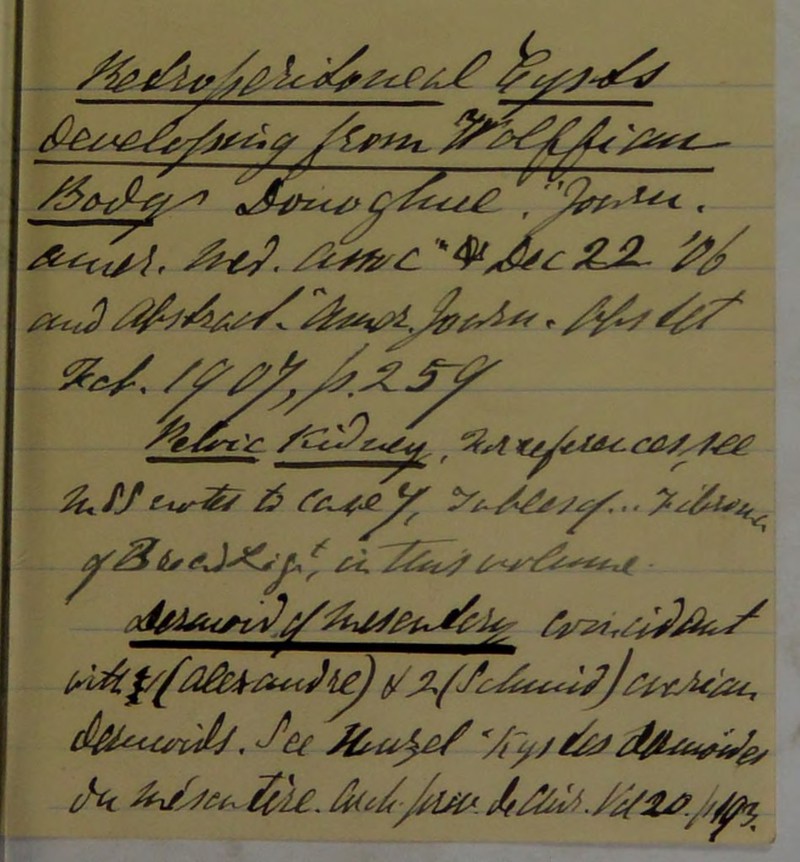 Retroperitoneal Cysts
developing from Wolffian
Body Donoghue. "Journ.
Amer. Med. Assoc" Dec 22 '06
and Abstract. "Amer. Journ. Obstet
Feb. 1907, p. 259
Pelvic Kidney, For references, see
MSS notes to case 7, Tables of... Fibroma
of Broad Ligt, in this volume.
Dermoid of Mesentery coincidant
with 1 (Alexandre) & 2 (Schmid) ovarian
dermoids. See "Kystes dermoides
du mésentère. Arch. prov. de Chir. Vol 20. p 193.